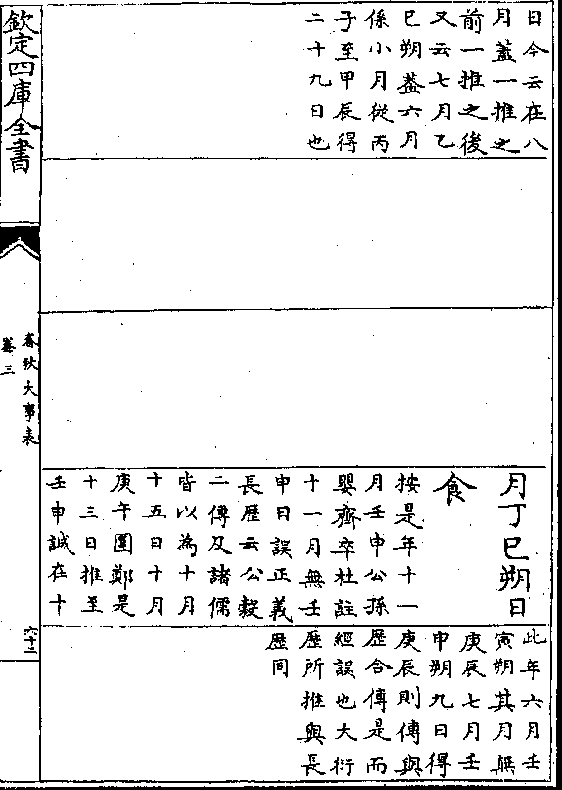 日今云在八
月蓋一推之
前一推之後
又云七月乙
巳朔蓋六月
係小月從丙
子至甲辰得
二十九日也
月丁巳朔日
食
按是年十一
月壬申公孫
嬰齊卒杜註
十一月無壬
申日誤正義
長歴云公糓
二傳及諸儒
皆以為十月
十五日十月
庚午圍鄭是
十三日推至
壬申誠在十
此年六月壬
寅朔其月無
庚辰七月壬
申朔九日得
庚辰則傳與
歴合傳是而
經誤也大衍
歴所推與長
歴同
欽定四庫全書
春秋大事表
卷三
六十三